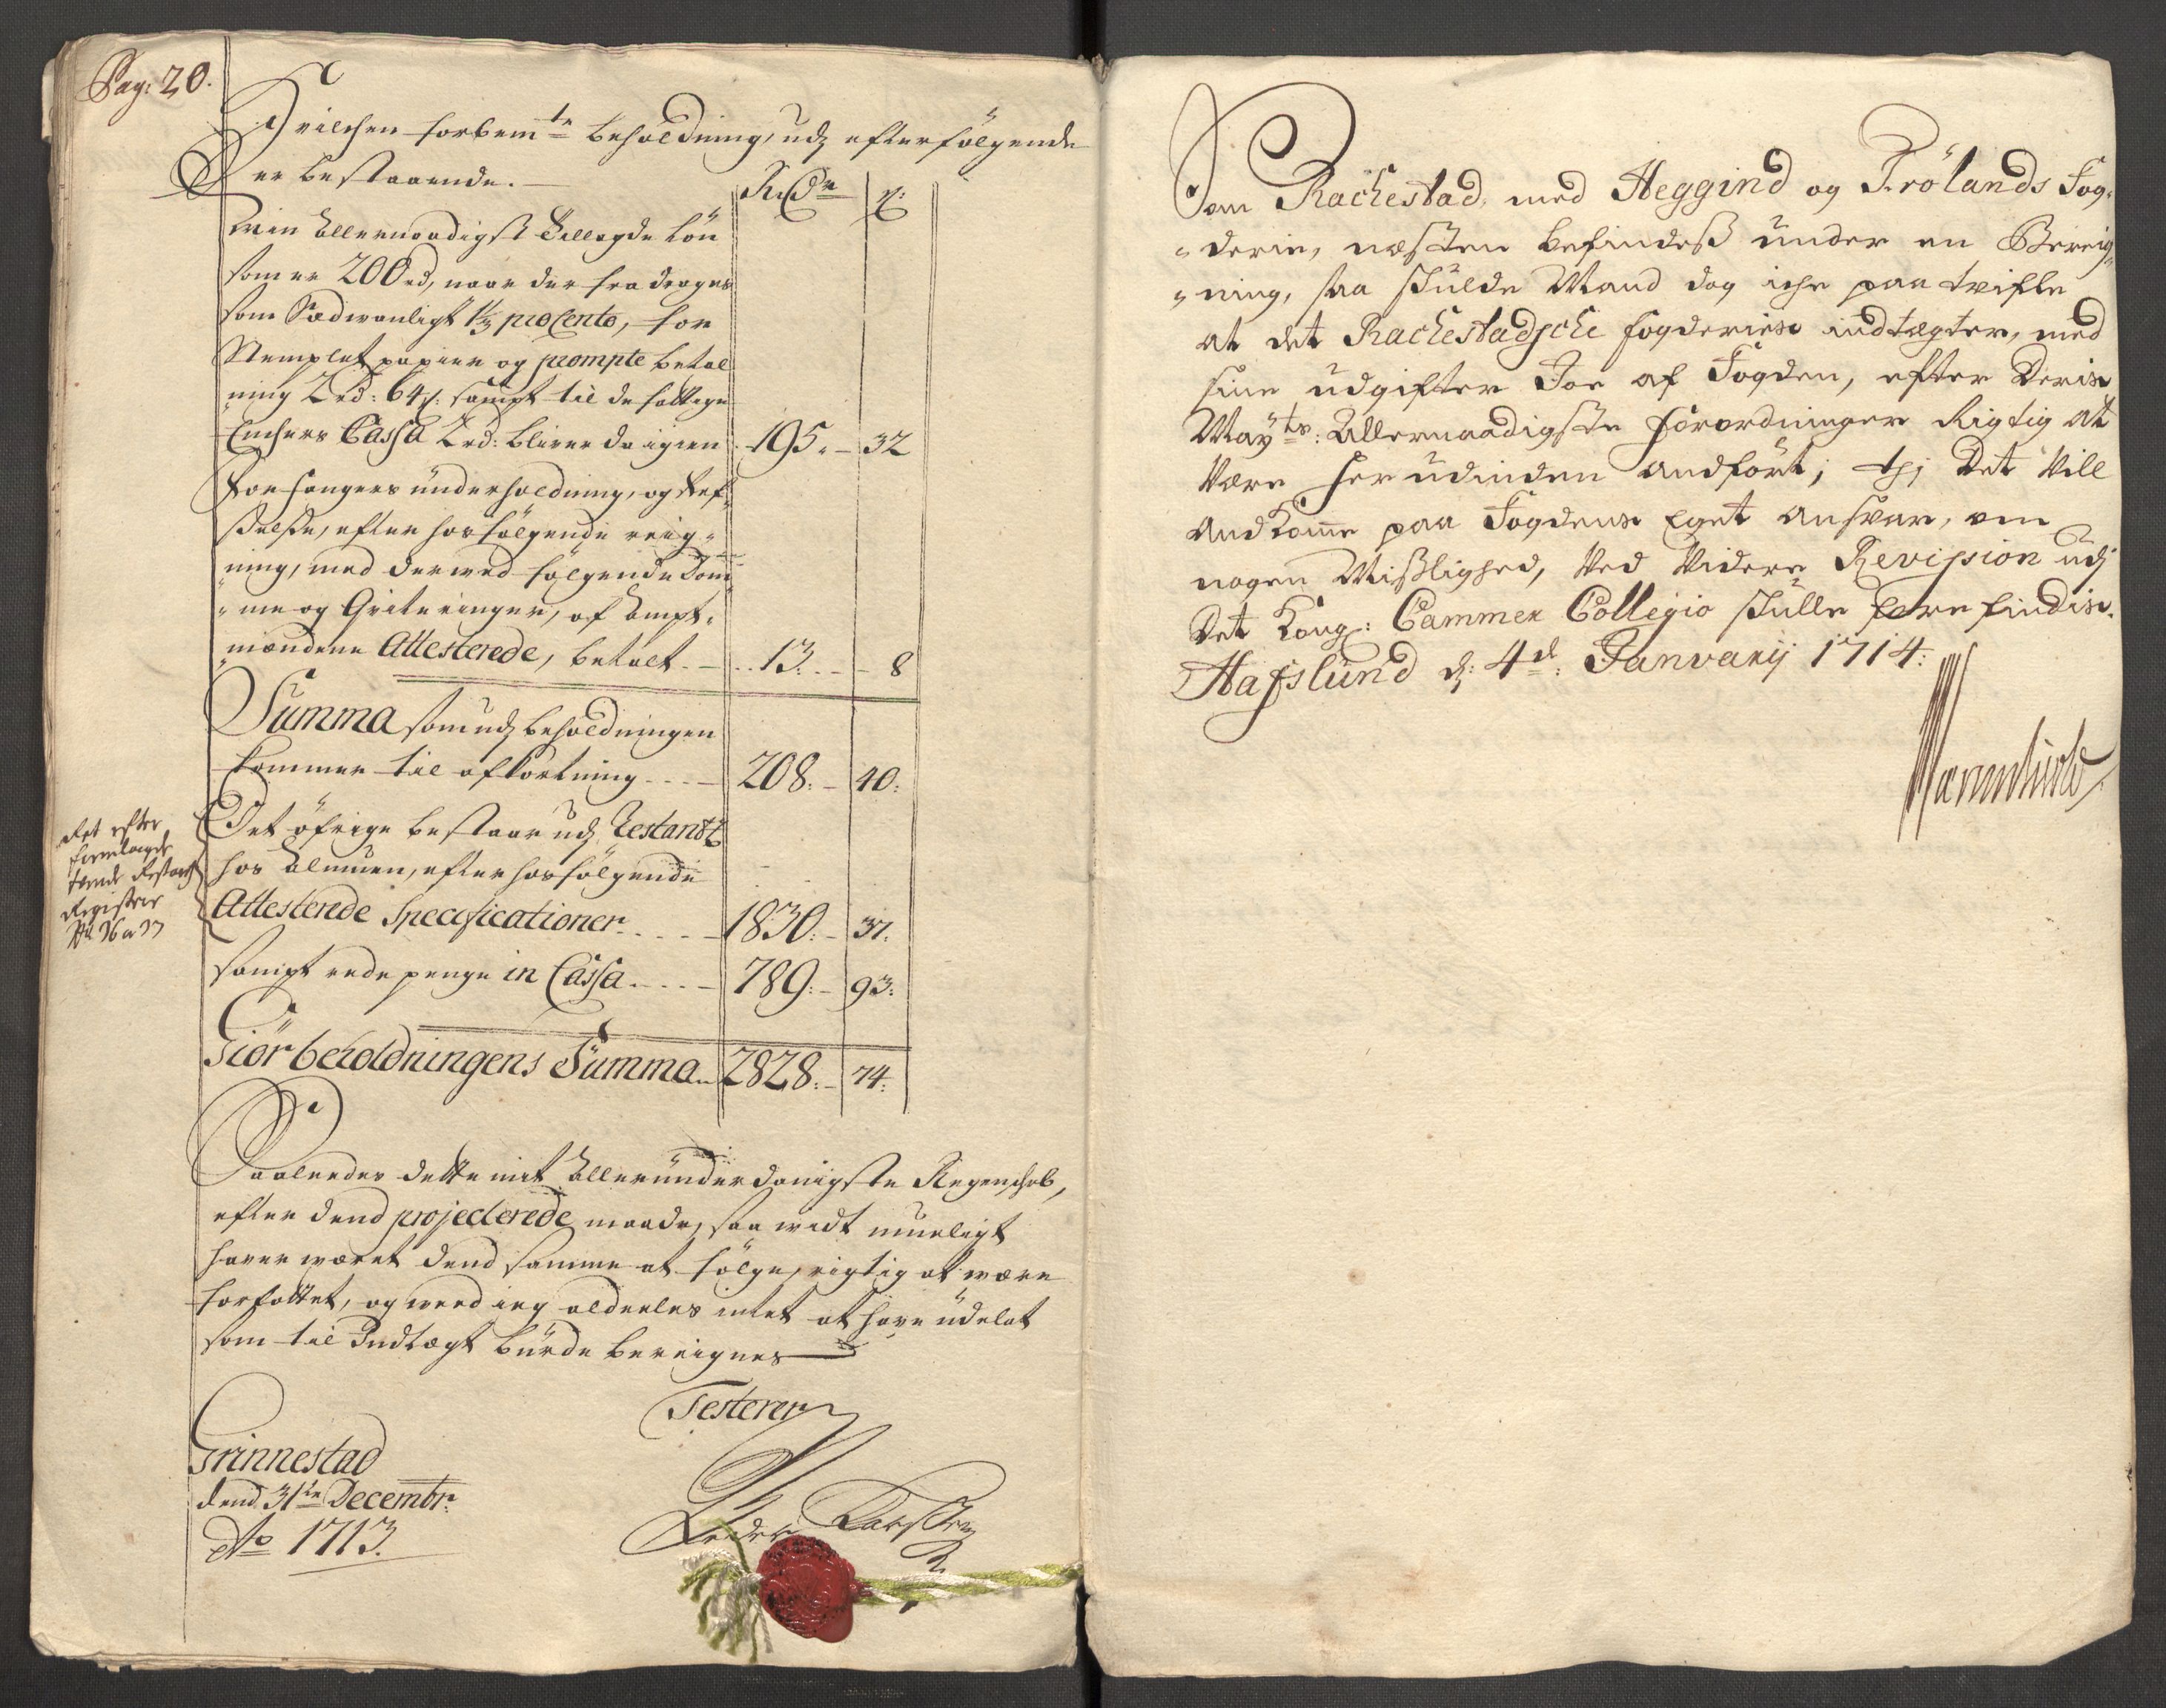 Pag: 20.
Hvilchen forbemte beholdning, udj efterfölgende
er bestaaende.
Rdr ß:
Min Allernaadigst Tillagde Lön
som er 200 rd, naar der fra drages
som Sædvanligt 1⅓ pro Cento, for
Stemplet papier og prompte betal
ning 2 rd: 64 ß: sampt til de fattige
Enchers Cassa 2 rd: bliver da igien 195. 32
For fangers underholdning, og
efter hosfölgende reig-
ning, med derved fölgende Dom-
me og Qviteringer, af Ampt-
mændene Attesterede, betalt 13. 8
Summa som udj beholdningen
kommer til afkortning 208: 40:
Det öfrige bestaar udj Restantz
hos Almuen, efter hosfölgende
Attesterede Specificationer 1830: 37.
sampt rede penge in Cassa 789: 93:
Giör beholdningens Summa 2828: 74:
det efter
Restantz
Registere
26 a 27
Saaledes dette mit Allerunderdanigste Regenschab,
efter dend projecterede maade, saa vidt mueligt
haver været dend samme at fölge, rigtig at være
forfattet, og veed ieg aldeeles intet at have udelat
som til Indtægt burde bereignes
Testerer
Grinnestad
dend 31te Decembr.
Ao 1713.
Peder Larssen
Som Rachestad, med Heggind og Frölands Fog-
derie, næsten befindes under en Bereig-
ning, saa skulde Mand dog iche paa tvifle
at det Rachestadsche fogderies indtægter, med
sine udgifter Joe af Fogden, efter Deris
Mayts: Allernaadigste Forordninger Rigtig at
være her udinden andfört; thj det vill
andkomme paa Fogdens Eget ansvar, om
nogen Mißlighed, ved videre Revision udj
det Kong: Cammer Collegio skulle forefindis.
Hafslund d: 4d: Januarij 1714: